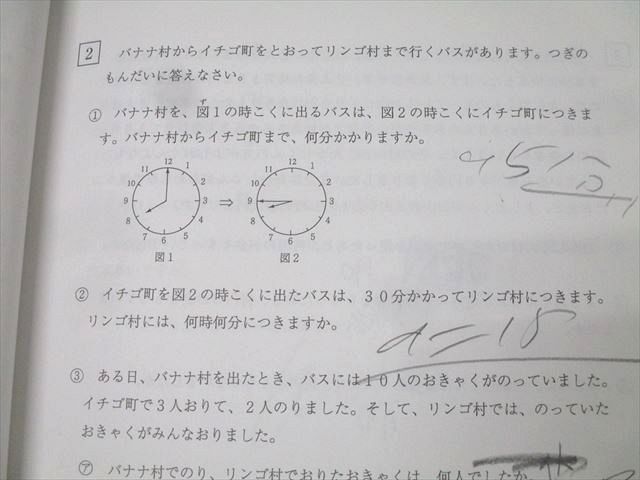 2 バナナ村からイチゴ町をとおってリンゴ村まで行くバスがあります。つぎの
もんだいに答えなさい。
① バナナ村を、図1の時こくに出るバスは、図2の時こくにイチゴ町につきま
ず
す。バナナ村からイチゴ町まで、何分かかりますか。
45分
12 1 2 3 4 5 6 7 8 9 10 11
⇒
12 1 2 3 4 5 6 7 8 9 10 11
図1
図2
② イチゴ町を図2の時こくに出たバスは、30分かかってリンゴ村につきます。
リンゴ村には、何時何分につきますか。
③ ある日、バナナ村を出たとき、バスには10人のおきゃくがのっていました。
イチゴ町で3人おりて、2人のりました。そして、リンゴ村では、のっていた
おきゃくがみんなおりました。
㋐ バナナ村でのり、リンゴ村でおりたおきゃくは、何人でしたか。